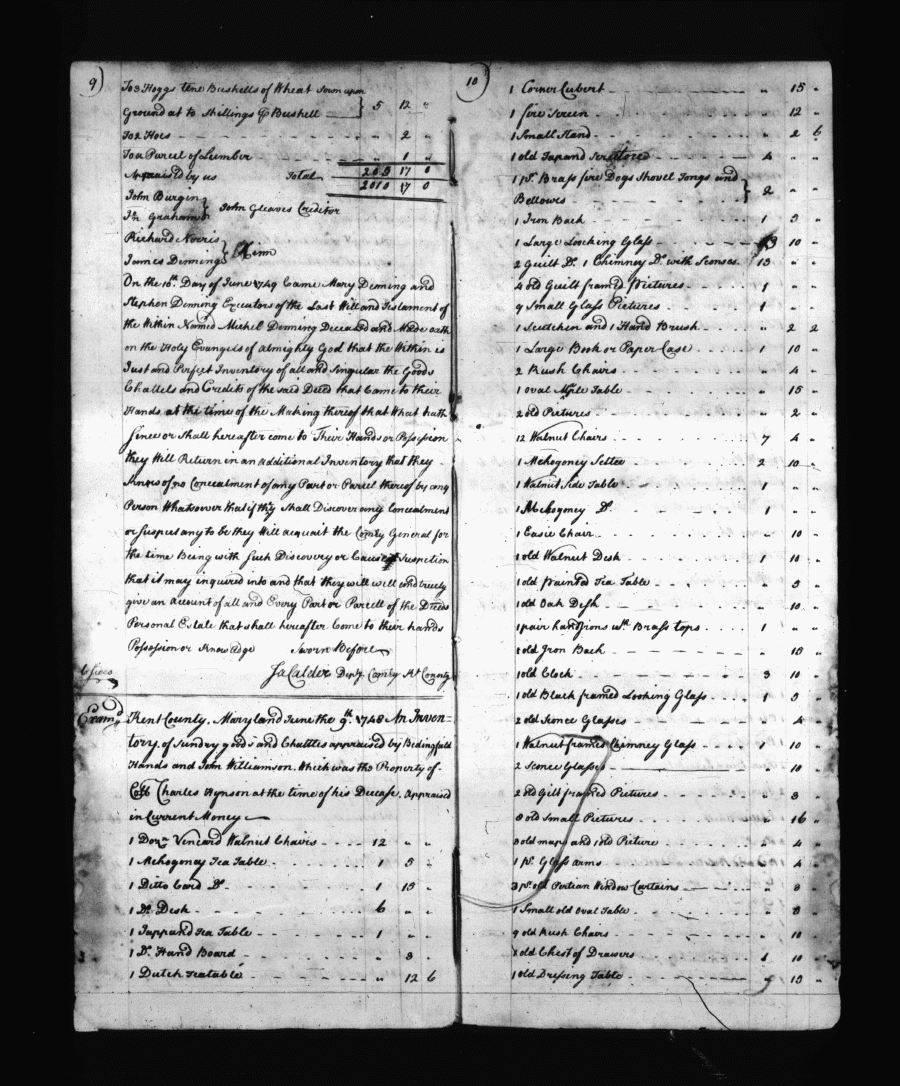 9)
To 3 Hoggs tene Bushells of Wheat Sown upon
Ground at 10 Shillings ⅌ Bushell 5 12 "
To 2 Hoes " 2 "
To a Parcel of Lumber " 1 "
Appraised by us Total 17 0
2010 17 0
John Burgin
Jn Graham } John Gleaves Creditor
Richard Norris
James Denning } Kinn
On the 16th Day of June 1749 Came Mary Denning and
Stephen Denning Executors of the Last Will and Testament of
the Within Named Michel Denning Deceased and Made oath
on the Holy Evangels of almighty God that the Within is
Just and Perfect Inventory of all and Singular the Goods
Chattels and Credits of the said Deced that Came to their
Hands at the time of the Making thereof that What hath
Since or Shall hereafter come to Their Hands or Possession
they Will Return in an additional Inventory that they
of no Concealment of any Part or Parcel thereof by any
Person Whatsoever that if they Shall Discover any Concealment
or Suspect any to be they Will acquait the Comty General for
the time Being with Such Discovery or Cause of Suspection
that it may inquired into and that they will well and truely
give an Account of all and Every Part or Parcell of the Deceds
Personal Estate that shall hereafter Come to their hands
Possession or Knowedge Sworn Before
6 sides
Ja Calder Depty Comty Kt County
Examd Kent County, Maryland June the 9th 1748 An Inven=
tory of Sundry goods and Chattles appraised by Bedingfield
Hands and John Williamson. Which was the Property of
Charles Hynson at the time of his Decease. Appraised
in Current Money
1 Dozn Veneard Walnut Chairs 12 " "
1 Mehogonay Tea Table 1 5 "
1 Ditto Card Do 1 15 "
1 Do Desk 6 " "
1 Jappand Tea Table 1 " "
1 Do Hand Board " 3 "
1 Dutch Teatable " 12 6
10)
1 Corner Cubert " 15 "
1 fire Screen " 12 "
1 Small Stand " 2 6
1 old Japand Scrittore 4 " "
1 pr Brass fire Dogs Shovel Tongs and
Bellows } 2 " "
1 Iron Back 1 5 "
1 Large Loocking Glass 10 "
2 Guilt Do 1 Chimney Do with Sconses. 13 " "
4 old Guilt framed Pictures 1 " "
9 Small Glass Pictures 1 " "
1 Scutchen and 1 Hand Brush " 2 2
1 Large Book or Paper Case 1 10 "
2 Rush Chairs " 4 "
1 oval Table " 15 "
2 old Pictures " 2 "
12 Walnut Chairs 7 4 "
1 Mehogoney Settee 2 10 "
1 Walnut Side Table 1 " "
1 Mehogoney Do 1 " "
1 Easie Chair " 10 "
1 old Walnut Desk 1 10 "
1 old painted Tea Table " 5 "
1 old Oak Desk " 10 "
1 pair handjions wth Brass tops 1 " "
1 old Iron Back " 10 "
1 old Clock 3 10 "
1 old Black framed Looking Glass 1 5 "
2 old Sconce Glasses " 4 "
1 Walnut framed Chimney Glass 1 10 "
2 Sconce Glasses " 10 "
2 old Gilt framed Pictures " 3 "
8 old Small Pictures " 16 "
3 old maps and 1 old Picture " 4 "
1 pr Glass arms " 4 "
3 ps old Persian Window Curtains " 8 "
1 Small old Oval Table " 8 "
9 old Rush Chairs " 10 "
1 old Chest of Drawers 1 10 "
1 old Dressing Table " 15 "